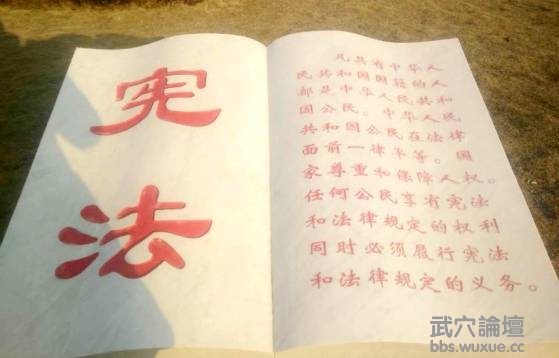 宪
法
凡具有中华人
民共和国国籍的人
都是中华人民共和
国公民。中华人民
共和国公民在法律
面前一律平等。国
家尊重和保障人权。
任何公民享有宪法
和法律规定的权利
同时必须履行宪法
和法律规定的义务。
武穴論壇
bbs.wuxue.cc